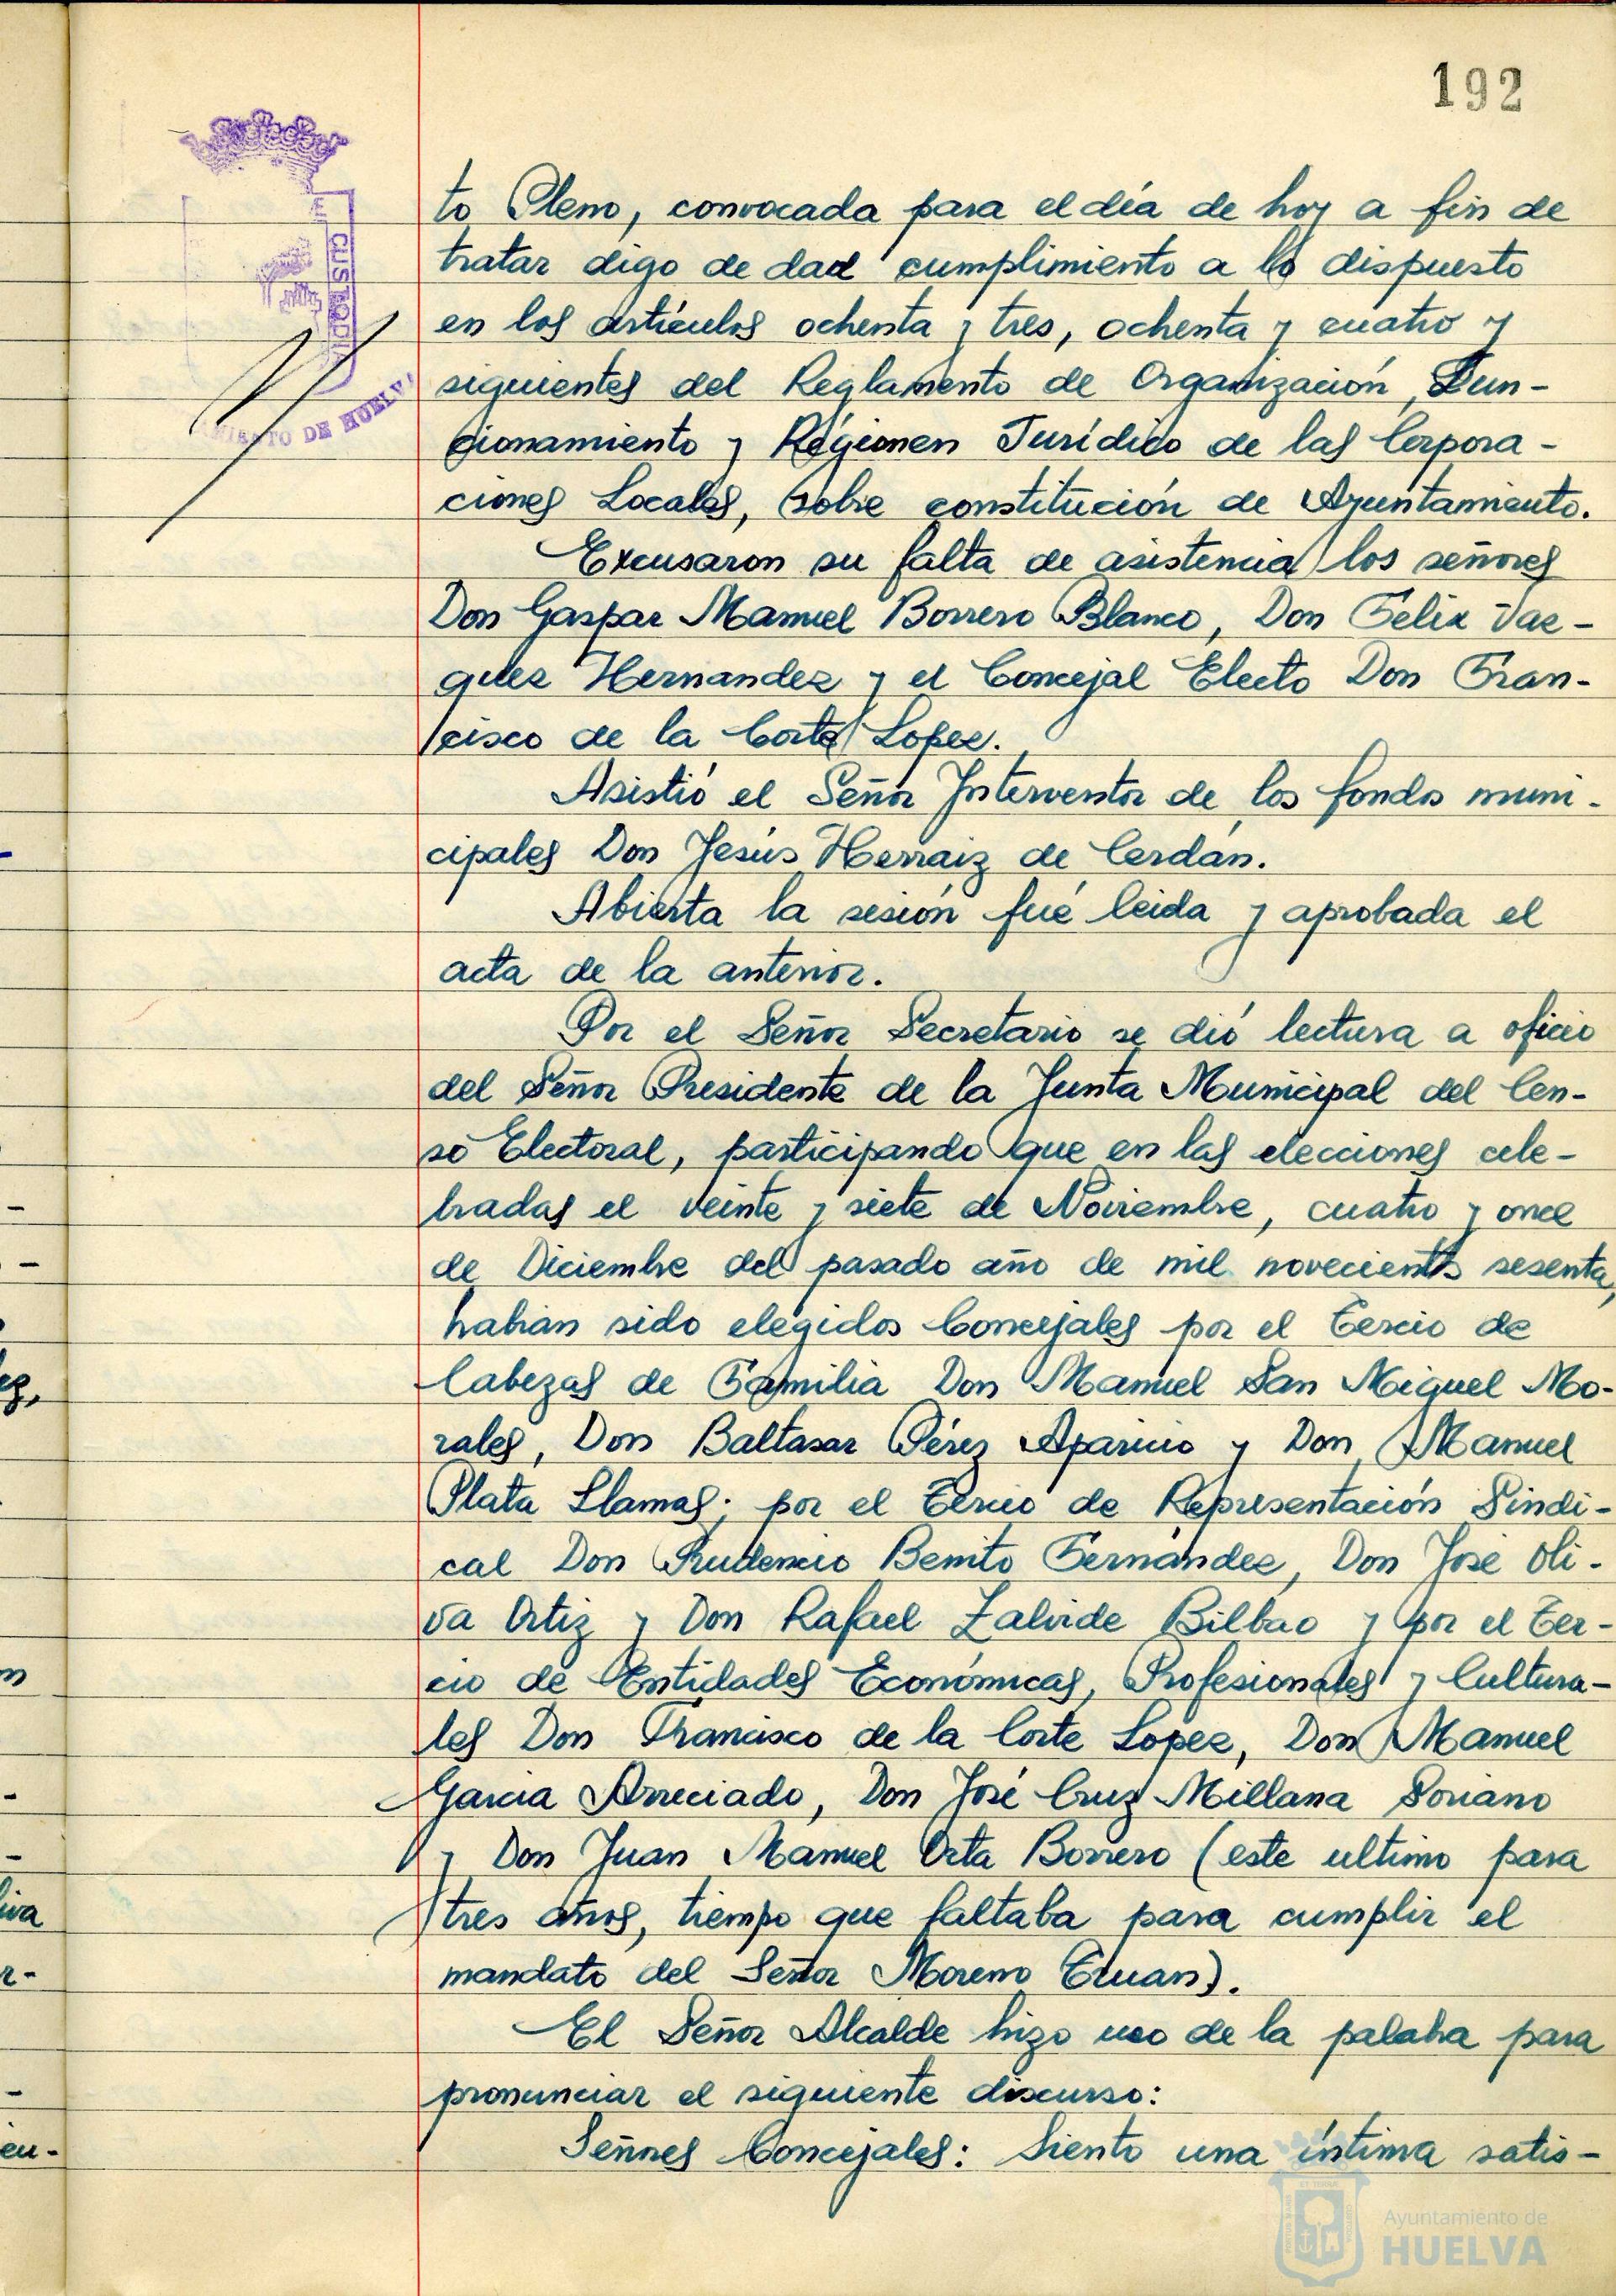 192
CUSTODI
AMIENTO DE HUELVA
to Pleno, convocada para el día de hoy a fin de
tratar digo de dad cumplimiento a lo dispuesto
en los artículos ochenta y tres, ochenta y cuatro y
siguientes del Reglamento de Organización, Fun-
cionamiento y Régimen Jurídico de las Corpora-
ciones Locales, sobre constitución de Ayuntamiento.
Excusaron su falta de asistencia los señores
Don Gaspar Manuel Borrero Blanco, Don Félix Vaz-
quez Hernandez y el Concejal Electo Don Fran-
cisco de la Corte Lopez.
Asistió el Señor Interventor de los fondos muni-
cipales Don Jesús Herraiz de Cerdán.
Abierta la sesión fué leida y aprobada el
acta de la anterior.
Por el Señor Secretario se dió lectura a oficio
del Señor Presidente de la Junta Municipal del Cen-
so Electoral, participando que en las elecciones cele-
bradas el veinte y siete de Noviembre, cuatro y once
de Diciembre del pasado año de mil novecientos sesenta,
habian sido elegidos Concejales por el Tercio de
Cabezas de Familia Don Manuel San Miguel Mo-
rales, Don Baltasar Pérez Aparicio y Don Manuel
Plata Llamas; por el Tercio de Representación Sindi-
cal Don Prudencio Benito Fernández, Don José Oli-
va Ortiz y Don Rafael Zalvide Bilbao y por el Ter-
cio de Entidades Económicas, Profesionales y Cultura-
les Don Francisco de la Corte Lopez, Don Manuel
Garcia Arreciado, Don José Cruz Millana Soriano
y Don Juan Manuel Orta Borrero (este ultimo para
tres años, tiempo que faltaba para cumplir el
mandato del Señor Moreno Truan).
El Señor Alcalde hizo uso de la palabra para
pronunciar el siguiente discurso:
Señores Concejales: Siento una íntima satis-
Ayuntamiento de
HUELVA